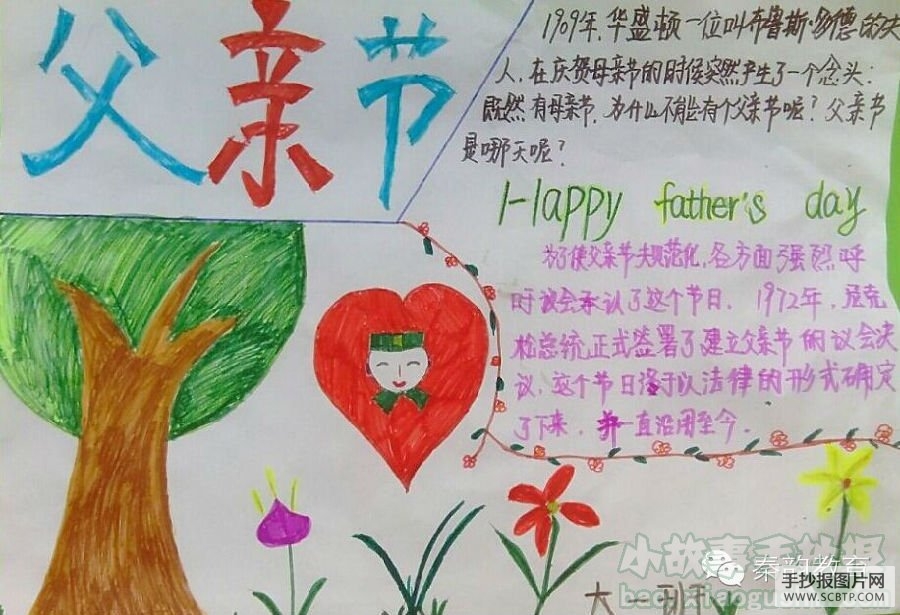 父亲节
1909年,华盛顿一位叫布鲁斯·多德的夫
人,在庆贺母亲节的时候突然产生了一个念头:
既然有母亲节,为什么不能有个父亲节呢?父亲节
是哪天呢?
Happy father's day
为了使父亲节规范化,各方面强烈呼
吁议会承认了这个节日.1972年,尼克
松总统正式签署了建立父亲节的议会决
议,这个节日终于以法律的形式确定
了下来,并一直沿用至今.
小故事手抄报
秦韵教育
手抄报图片网
WWW.SCBTP.COM
大一班